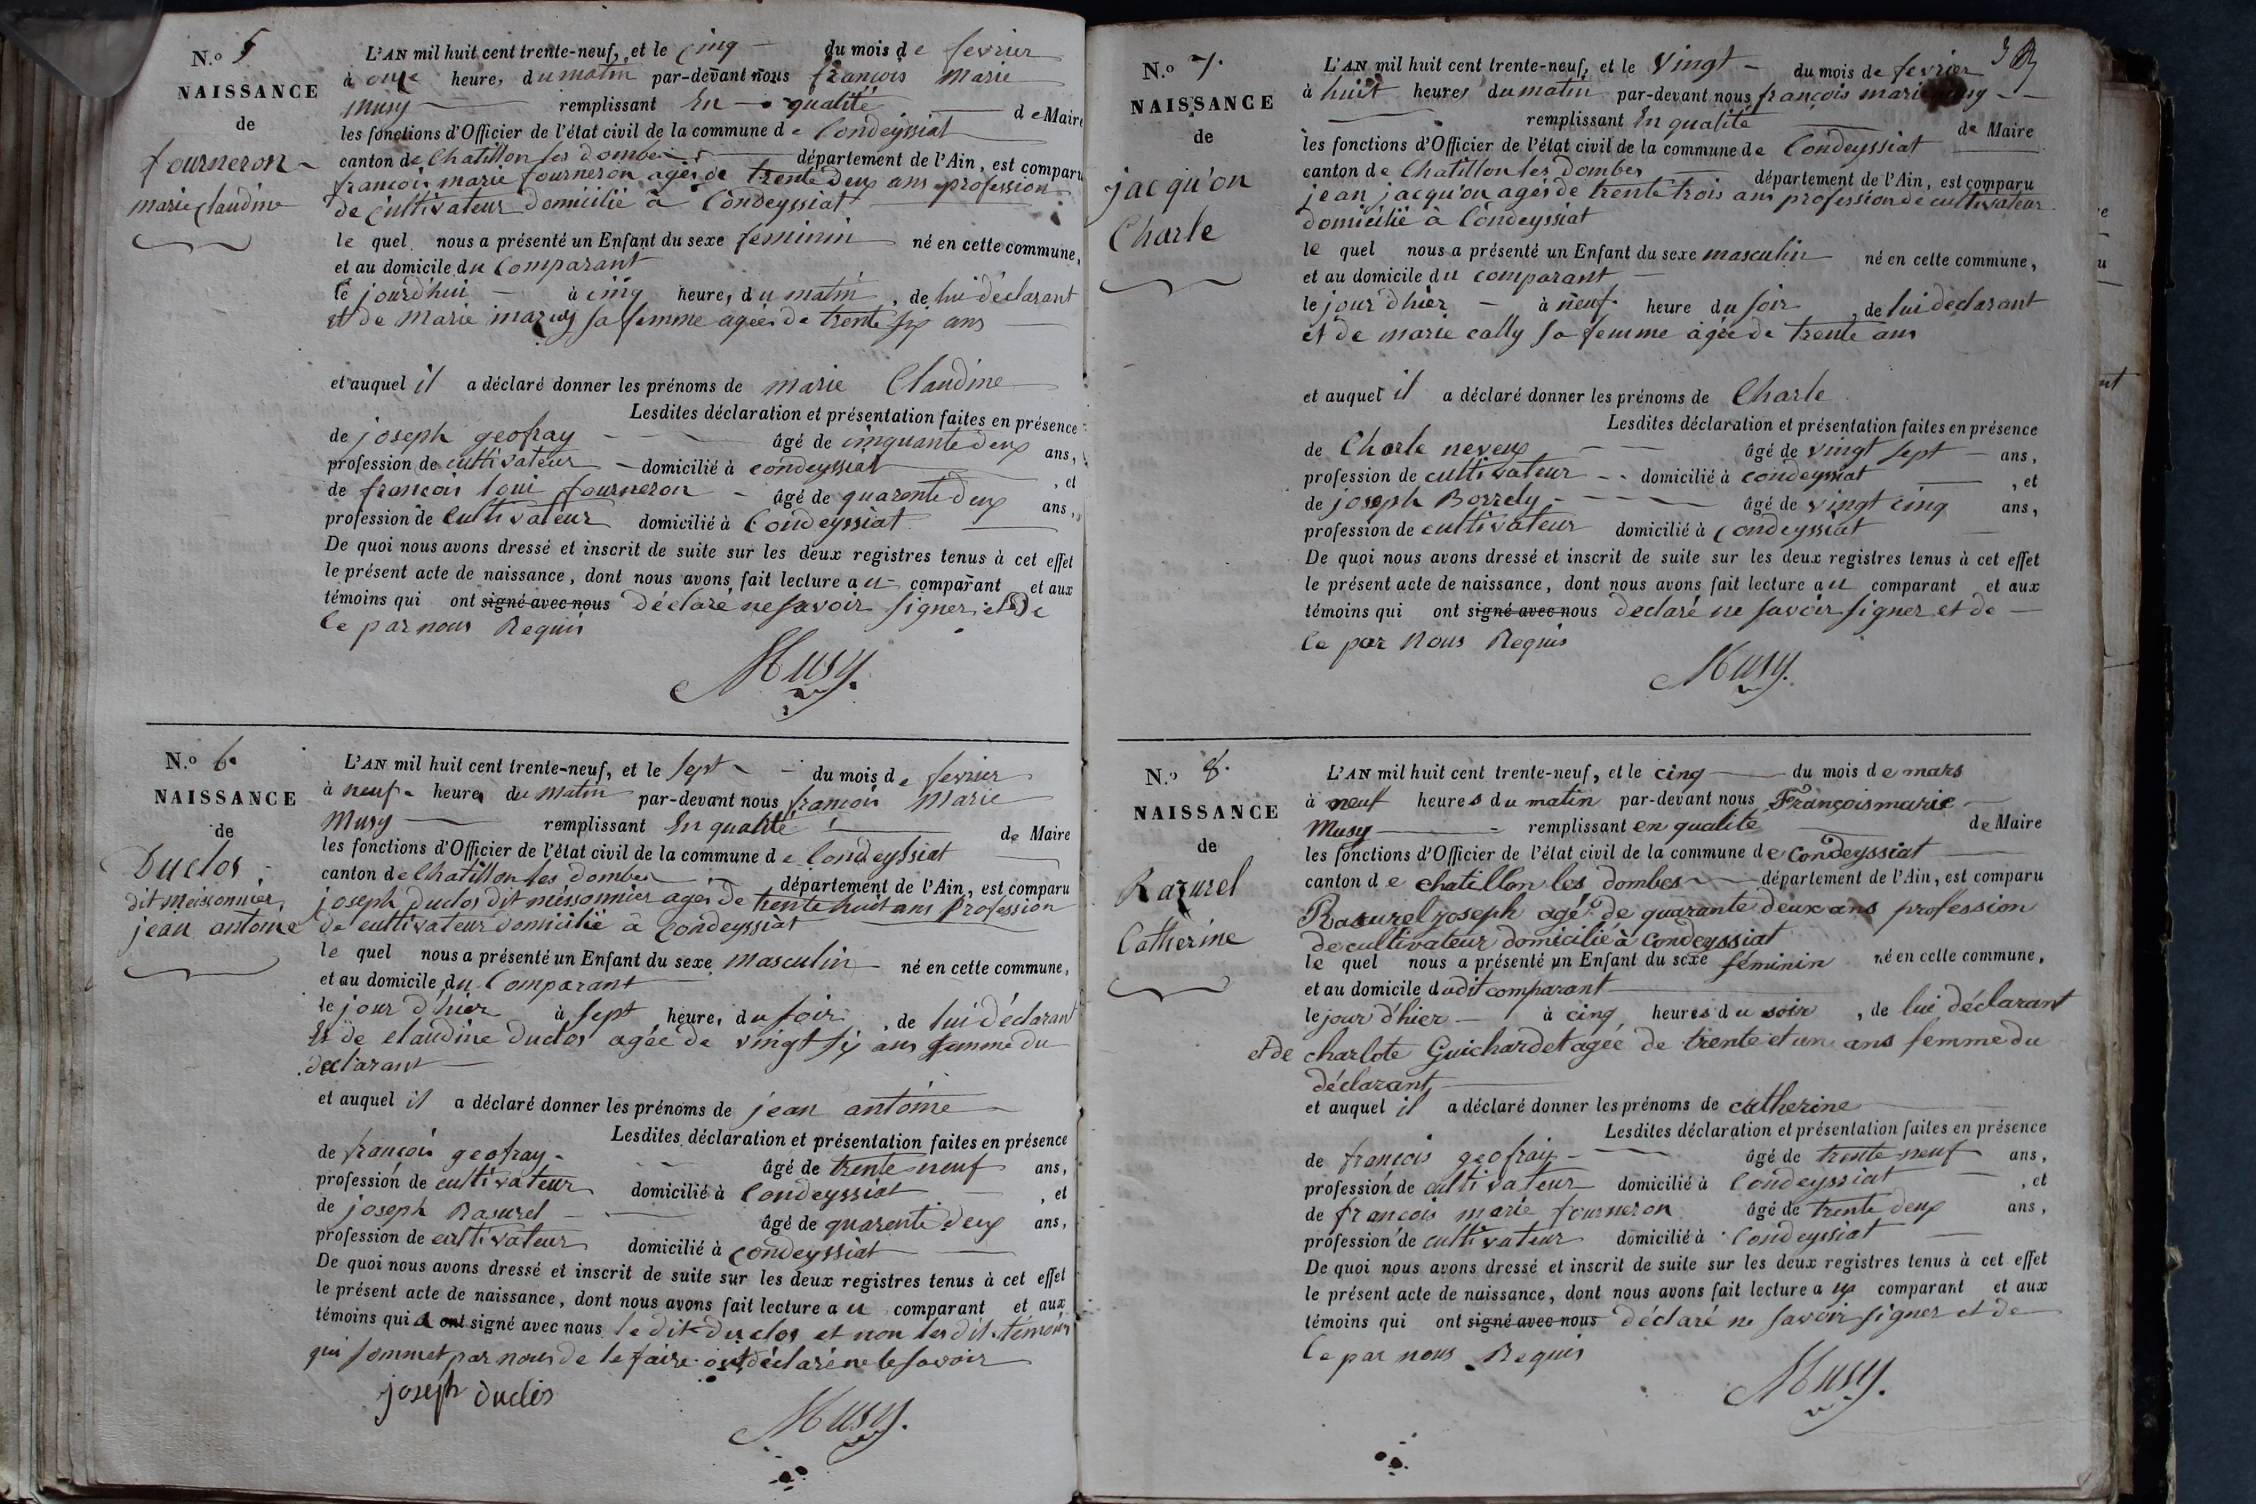 N.o 5
NAISSANCE
de
fourneron
marie claudine
L'AN mil huit cent trente-neuf, et le cinq du mois de fevrier
à onze heure, du matin par-devant nous françois Marie
Musy remplissant En qualité de Maire
les fonctions d'Officier de l'état civil de la commune de Condeyssiat
canton de Chatillon les dombes département de l'Ain, est comparu
francois marie fourneron agés de trente deux ans profession
de cultivateur Domicilié à Condeyssiat
le quel nous a présenté un Enfant du sexe feminin né en cette commune,
et au domicile du Comparant
le jourd'hui à cinq heure, du matin, de lui déclarant
et de Marie sa femme agées de trente six ans
et auquel il a déclaré donner les prénoms de marie Claudine
Lesdites déclaration et présentation faites en présence
de joseph geofray âgé de cinquante deux ans,
profession de cultivateur domicilié à condeyssiat, et
de francois loui fourneron âgé de quarente deux ans,
profession de Cultivateur domicilié à Condeyssiat
De quoi nous avons dressé et inscrit de suite sur les deux registres tenus à cet effet
le présent acte de naissance, dont nous avons fait lecture au comparant et aux
témoins qui ont signé avec nous déclaré ne savoir signer et De
Ce par nous Requis
Musy.
N.o 6.
NAISSANCE
de
Duclos
dit meissonnier
jean antoine
L'AN mil huit cent trente-neuf, et le sept du mois de fevrier
à neuf heure, du matin par-devant nous françois Marie
Musy remplissant En qualité de Maire
les fonctions d'Officier de l'état civil de la commune de Condeyssiat
canton de Chatillon les dombes département de l'Ain, est comparu
joseph Duclos dit meissonnier agés de trente huit ans Profession
de cultivateur domicilié à Condeyssiat
le quel nous a présenté un Enfant du sexe masculin né en cette commune,
et au domicile du Comparant
le jour d'hier à sept heure, du soir, de lui déclarant
Et de claudine Duclos agée de vingt six ans femme du
declarant
et auquel il a déclaré donner les prénoms de jean antoine
Lesdites déclaration et présentation faites en présence
de françois geofray âgé de trente neuf ans,
profession de cultivateur domicilié à Condeyssiat, et
de joseph Rasurel âgé de quarente deux ans,
profession de cultivateur domicilié à Condeyssiat
De quoi nous avons dressé et inscrit de suite sur les deux registres tenus à cet effet
le présent acte de naissance, dont nous avons fait lecture au comparant et aux
témoins qui a ont signé avec nous le dit Duclos et non les dit temoins
qui sommet par nous de le faire ont déclaré ne le savoir
joseph duclos
Musy.
N.o 7.
NAISSANCE
de
jacqu'on
Charle
L'AN mil huit cent trente-neuf, et le Vingt du mois de fevrier
à huit heures du matin par-devant nous françois marie
remplissant En qualité de Maire
les fonctions d'Officier de l'état civil de la commune de Condeyssiat
canton de Chatillon les Dombes département de l'Ain, est comparu
jean jacqu'on agés de trente trois ans profession de cultivateur
domicilié à Condeyssiat
le quel nous a présenté un Enfant du sexe masculin né en cette commune,
et au domicile du comparant
le jour d'hier à neuf heure du soir, de lui declarant
et de marie cally sa femme agée de trente ans
et auquel il a déclaré donner les prénoms de Charle
Lesdites déclaration et présentation faites en présence
de Charle neveux âgé de vingt sept ans,
profession de cultivateur domicilié à condeyssiat, et
de joseph Borrely âgé de vingt cinq ans,
profession de cultivateur domicilié à Condeyssiat
De quoi nous avons dressé et inscrit de suite sur les deux registres tenus à cet effet
le présent acte de naissance, dont nous avons fait lecture au comparant et aux
témoins qui ont signé avec nous declaré ne savoir signer et de
Ce par Nous Requis
Musy.
N.o 8.
NAISSANCE
de
Razurel
Catherine
L'AN mil huit cent trente-neuf, et le cinq du mois de mars
à neuf heures du matin par-devant nous François marie
Musy remplissant en qualité de Maire
les fonctions d'Officier de l'état civil de la commune de Condeyssiat
canton de chatillon les dombes département de l'Ain, est comparu
Rasurel joseph agé de quarante deux ans profession
de cultivateur domicilié à condeyssiat
le quel nous a présenté un Enfant du sexe féminin né en cette commune,
et au domicile dudit comparant
le jour d'hier à cinq heures du soir, de lui déclarant
et de charlote Guichardet agée de trente et un ans femme du
déclarant
et auquel il a déclaré donner les prénoms de catherine
Lesdites déclaration et présentation faites en présence
de françois geofray âgé de trente neuf ans,
profession de cultivateur domicilié à Condeyssiat, et
de françois marie fourneron âgé de trente deux ans,
profession de cultivateur domicilié à Condeyssiat
De quoi nous avons dressé et inscrit de suite sur les deux registres tenus à cet effet
le présent acte de naissance, dont nous avons fait lecture au comparant et aux
témoins qui ont signé avec nous déclaré ne savoir signer et de
Ce par nous Requis
Musy.